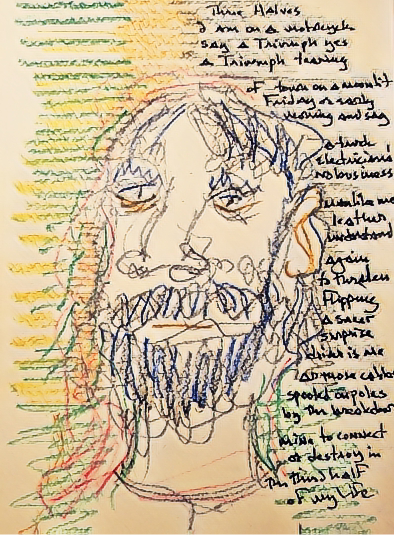 Three Halves
I am on a motorcycle
say a Triumph yes
a Triumph tearing
of town on a moonlit
Friday or early
morning and say
a truck
electrician's
no business
like me
leather
understand
again
to
flipping
a
surprise
is me
those cable
spooled on poles
by the
mine to connect
or destroy in
the third half
of my life